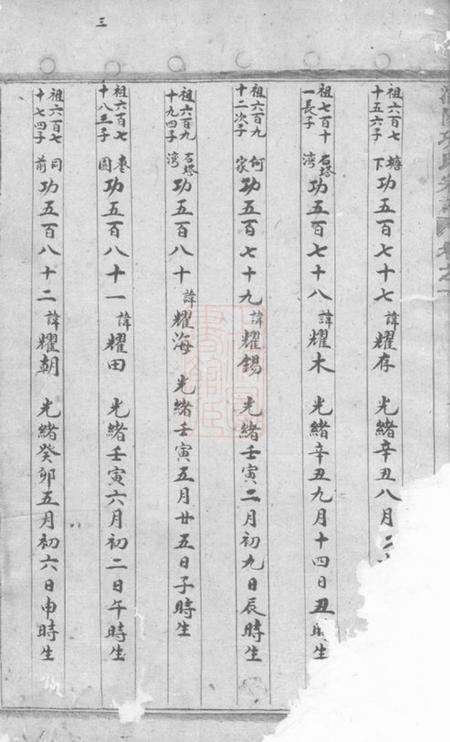 三
祖六百七十五六子 塘下 功五百七十七 諱耀存 光緒辛丑八月二
祖七百十一長子 石塔湾 功五百七十八 諱耀木 光緒辛丑九月十四日丑時生
祖六百九十二次子 何家 功五百七十九 諱耀錫 光緒壬寅二月初九日辰時生
祖六百九十九四子 石塔湾 功五百八十 諱耀海 光緒壬寅五月廿五日子時生
祖六百七十八三子 棗園 功五百八十一 諱耀田 光緒壬寅六月初二日午時生
祖六百七十七四子 同前 功五百八十二 諱耀朝 光緒癸卯五月初六日申時生